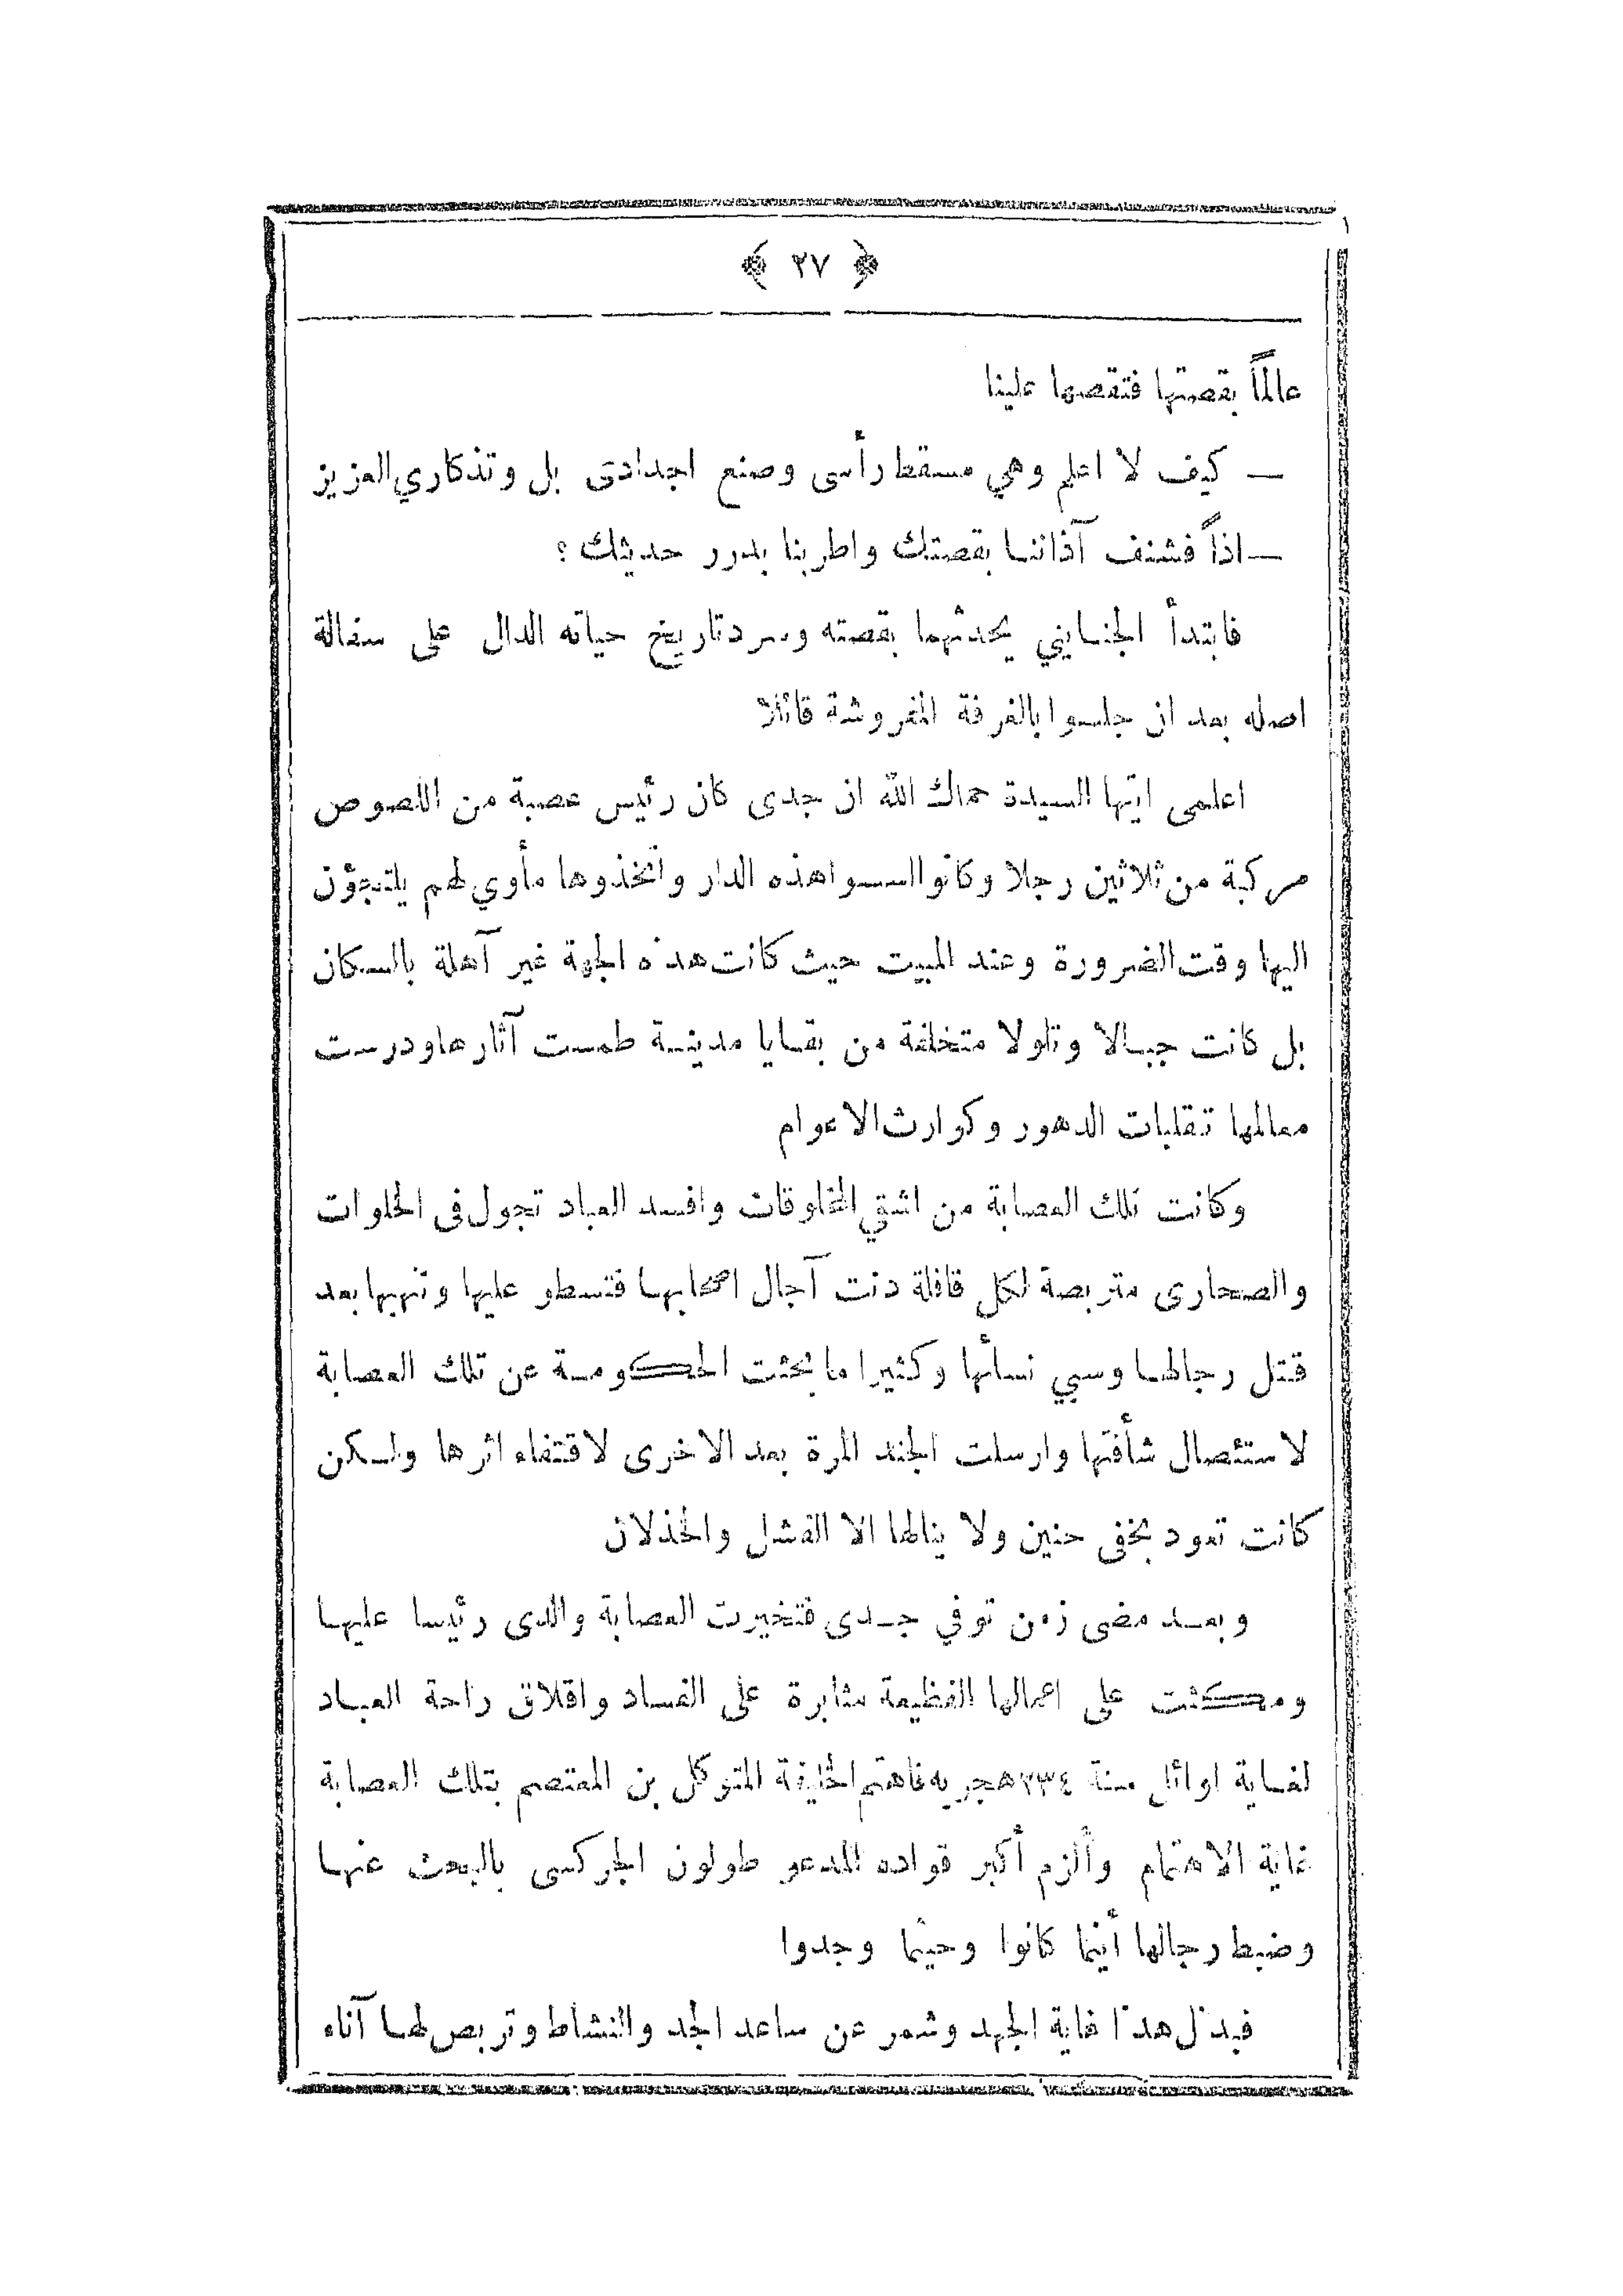 ﴿ ٢٧ ﴾
عالماً بقصتها فتقصها علينا
— كيف لا اعلم وهي مسقط رأسى وصنع اجدادى بل وتذكاري العزيز
— اذاً فشنف آذاننا بقصتك واطربنا بدرر حديثك ؟
فابتدأ الجنايني يحدثهما بقصته وسرد تاريخ حياته الدال على سفالة
اصله بعد ان جلسوا بالغرفة المفروشة قائلا
اعلمى ايتها السيدة حماك الله ان جدى كان رئيس عصبة من اللصوص
مركبة من ثلاثين رجلا وكانوا اسسوا هذه الدار واتخذوها مأوي لهم يلتجؤن
اليها وقت الضرورة وعند المبيت حيث كانت هذه الجهة غير آهلة بالسكان
بل كانت جبالا وتلولا متخلفة من بقايا مدينة طمست آثارها ودرست
معالمها تقلبات الدهور وكوارث الاعوام
وكانت تلك العصابة من اشقي المخلوقات وافسد العباد تجول فى الخلوات
والصحارى متربصة لكل قافلة دنت آجال اصحابها فتسطو عليها وتنهبها بعد
قتل رجالها وسبي نسائها وكثيرا ما بحثت الحكومة عن تلك العصابة
لاستئصال شأفتها وارسلت الجند المرة بعد الاخرى لاقتفاء اثرها ولكن
كانت تعود بخفى حنين ولا ينالها الا الفشل والخذلان
وبعد مضى زمن توفي جدى فتخيرت العصابة والدى رئيسا عليها
ومكثت على اعمالها الفظيعة مثابرة على الفساد واقلاق راحة العباد
لغاية اوائل سنة ٢٣٤ هجريه فاهتم الخليفة المتوكل بن المعتصم بتلك العصابة
غاية الاهتمام وألزم أكبر قواده المدعو طولون الجركسى بالبحث عنها
وضبط رجالها أينما كانوا وحيثما وجدوا
فبذل هذا غاية الجهد وشمر عن ساعد الجد والنشاط وتربص لها آناء